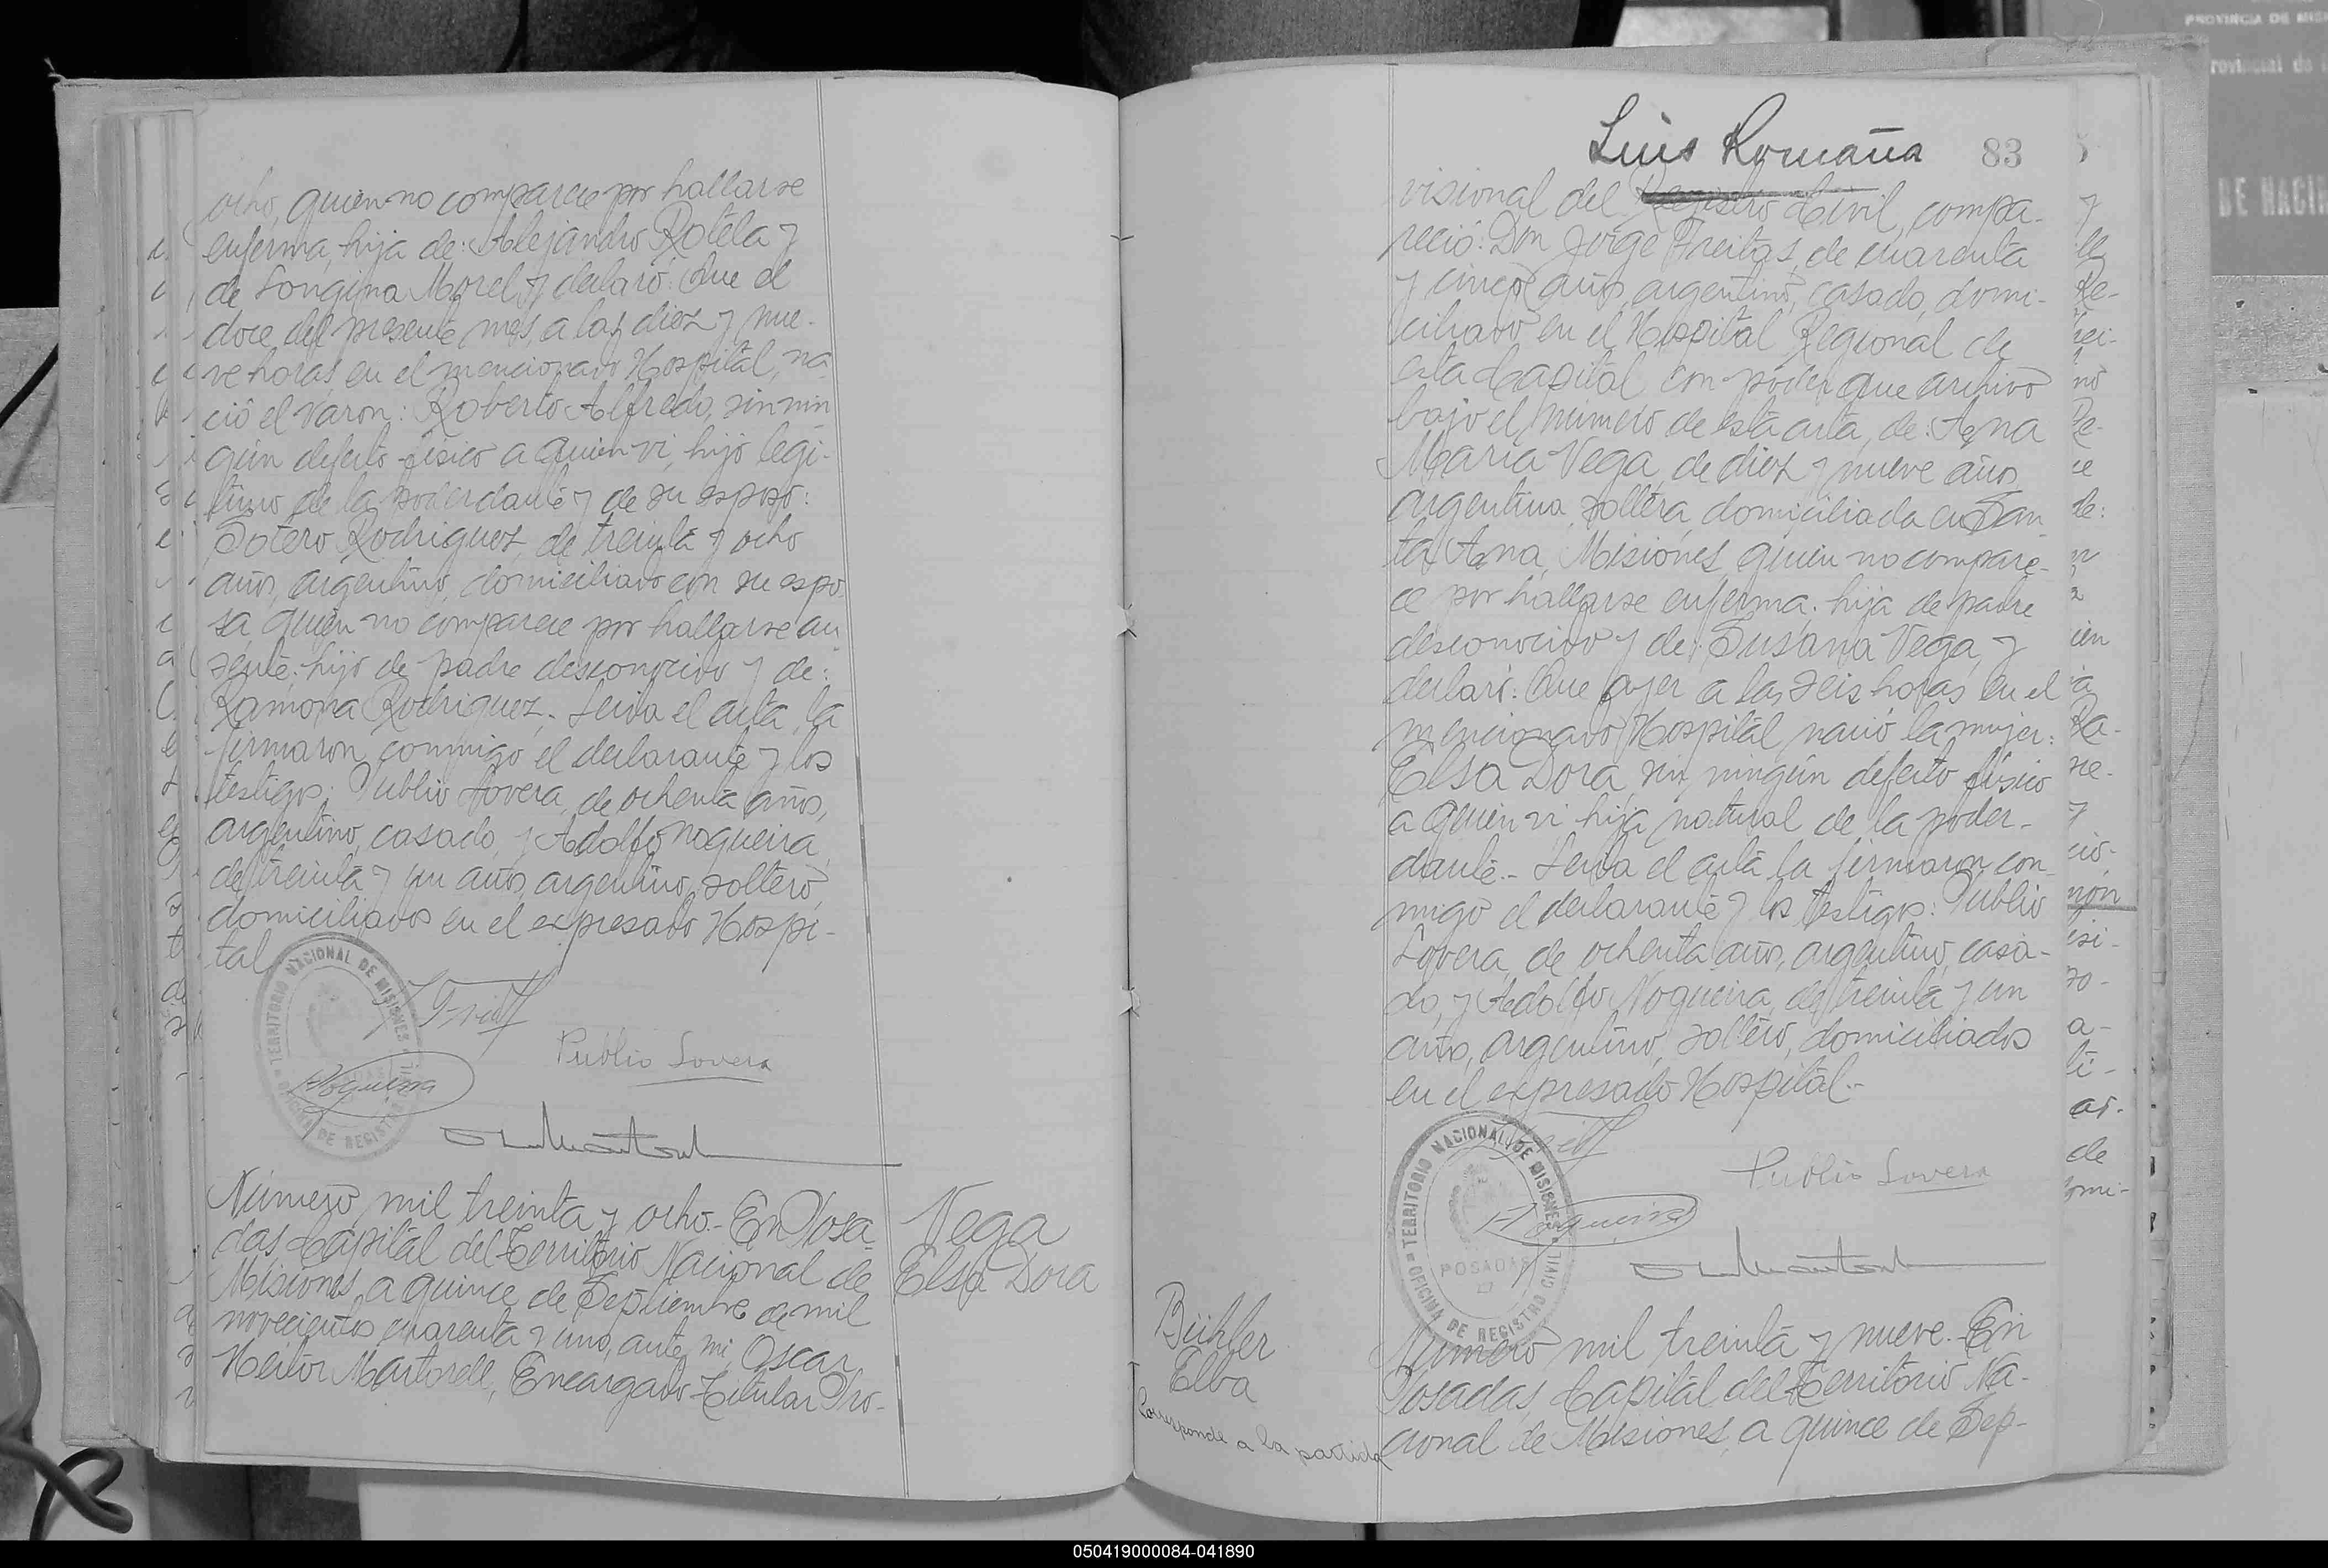 ocho, quien no comparece por hallarse
enferma, hija de: Alejandro Rotela y
de Longina Morel, y declaró: Que el
doce del presente mes, a las diez y nue-
ve horas en el mencionado Hospital, na
ció el varon: Roberto Alfredo, sin nin
gún defecto físico a quien vi, hijo legi-
timo de la poderdante y de su esposo:
Sotero Rodriguez, de treinta y ocho
años, argentino, domiciliado con su espo
sa quien no comparece por hallarse au
sente: hijo de padre desconocido y de:
Ramona Rodriguez.- Leida el acta, la
firmaron conmigo el declarante y los
testigos: Publio Lovera, de ochenta años,
argentino, casado, y Adolfo Nogueira,
de treinta y un años, argentino, soltero,
domiciliados en el expresado Hospi-
tal
TERRITORIO NACIONAL DE MISIONES
OFICINA DE REGISTRO CIVIL
Publio Lovera
ANogueira
Número mil treinta y ocho.- En Posa-
das Capital del Territorio Nacional de
Misiones, a quince de Septiembre de mil
novecientos cuarenta y uno, ante mi, Oscar
Heitor Martorell, Encargado Titular Pro-
Vega
Elsa Dora
Luis Romaña
83
visional del Registro Civil, compa-
reció: Don Jorge Freitas, de cuarenta
y cinco años, argentino, casado, domi-
ciliado en el Hospital Regional de
esta Capital con poder que archivo
bajo el número de esta acta, de: Ana
Maria Vega, de diez y nueve años,
argentina, soltera, domiciliada en San
ta Ana, Misiones, quien no compare-
ce por hallarse enferma: hija de padre
desconocido y de: Susana Vega, y
declaró: Que ayer a las seis horas en el
mencionado Hospital nació la mujer:
Elsa Dora, sin ningún defecto físico
a quien vi hija natural de la poder-
dante.- Leida el acta la firmaron con
migo el declarante y los testigos: Publio
Lovera, de ochenta años, argentino, casa-
do, y Adolfo Nogueira, de treinta y un
años, argentino, soltero, domiciliados
en el expresado Hospital.-
TERRITORIO NACIONAL DE MISIONES
POSADAS
OFICINA DE REGISTRO CIVIL
Publio Lovera
ANogueira
Bühler
Elba
Corresponde a la partida
Número mil treinta y nueve.- En
Posadas, Capital del Territorio Na-
cional de Misiones, a quince de Sep-
PROVINCIA DE MIS
DE NACIM
050419000084-041890